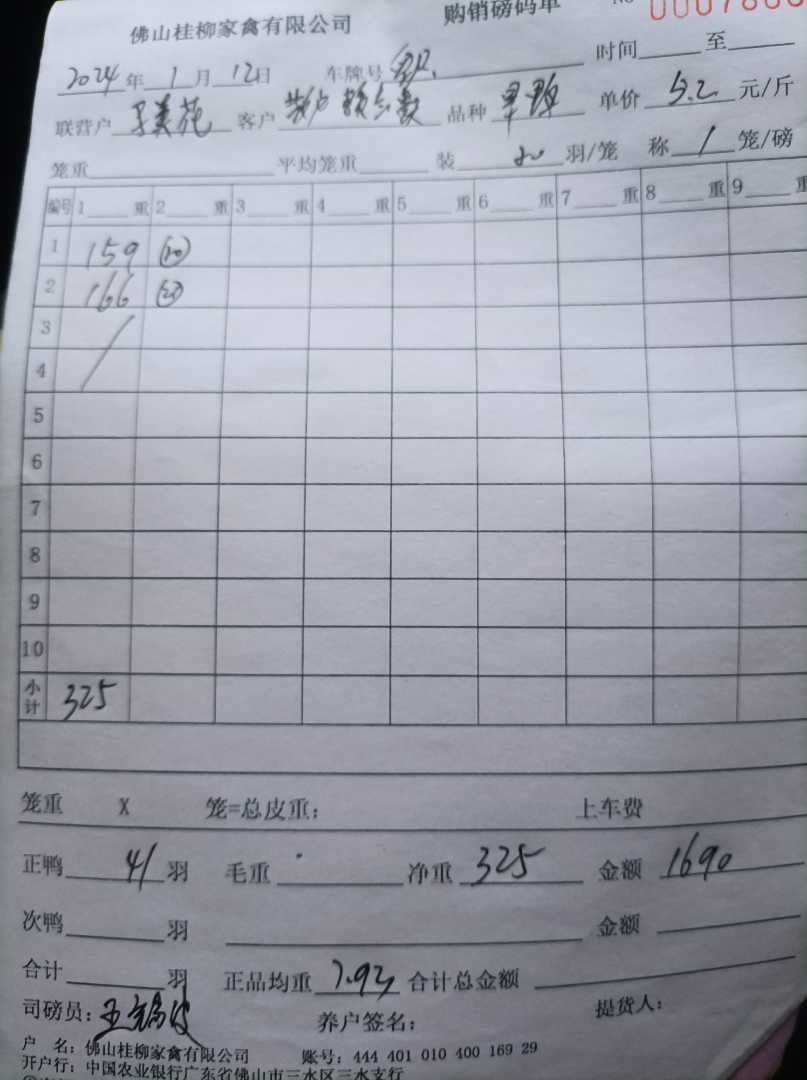 佛山桂柳家禽有限公司 购销磅码单 No
2024年 1月 12日 车牌号 时间 至
联营户 美花 客户 散户 品种 单价 5.2 元/斤
笼重 平均笼重 装 20 羽/笼 称 1 笼/磅
编号 1 重 2 重 3 重 4 重 5 重 6 重 7 重 8 重 9 重
1 159
2 166
3
4
5
6
7
8
9
10
小计 325
笼重 X 笼=总皮重: 上车费
正鸭 41 羽 毛重 净重 325 金额 1690
次鸭 羽 金额
合计 羽 正品均重 7.93 合计总金额
司磅员: 王 养户签名: 提货人:
户 名: 佛山桂柳家禽有限公司 账号: 444 401 010 400 169 29
开户行: 中国农业银行广东省佛山市三水区三水支行